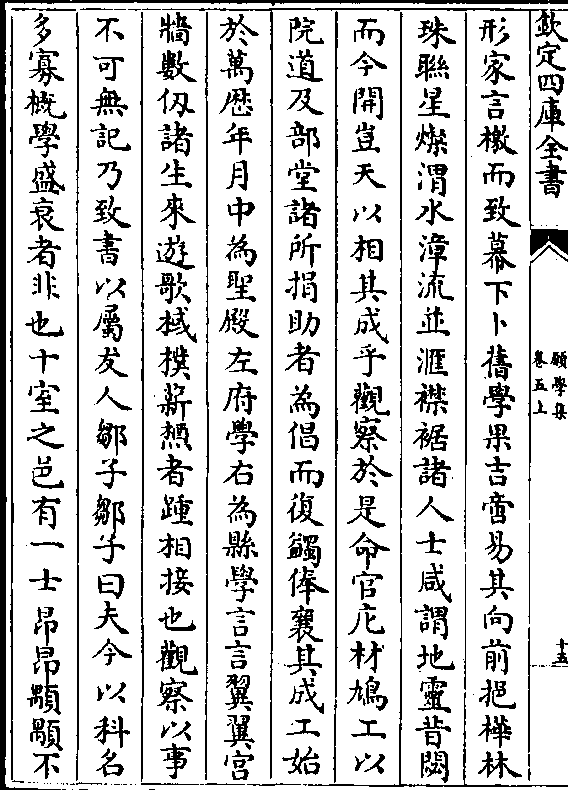 欽定四庫全書
願學集
卷五上
十五
形家言檄而致幕下卜舊學果吉啻易其向前挹樺林
珠聯星燦渭水漳流並滙襟裾諸人士咸謂地靈昔閟
而今開豈天以相其成乎觀察於是命官庀材鳩工以
院道及部堂諸所捐助者為倡而復蠲俸襄其成工始
於萬歷年月中為聖殿左府學右為縣學言言翼翼宮
牆數仭諸生來遊歌棫樸薪槱者踵相接也觀察以事
不可無記乃致書以屬友人鄒子鄒子曰夫今以科名
多寡概學盛衰者非也十室之邑有一士昂昂顒顒不